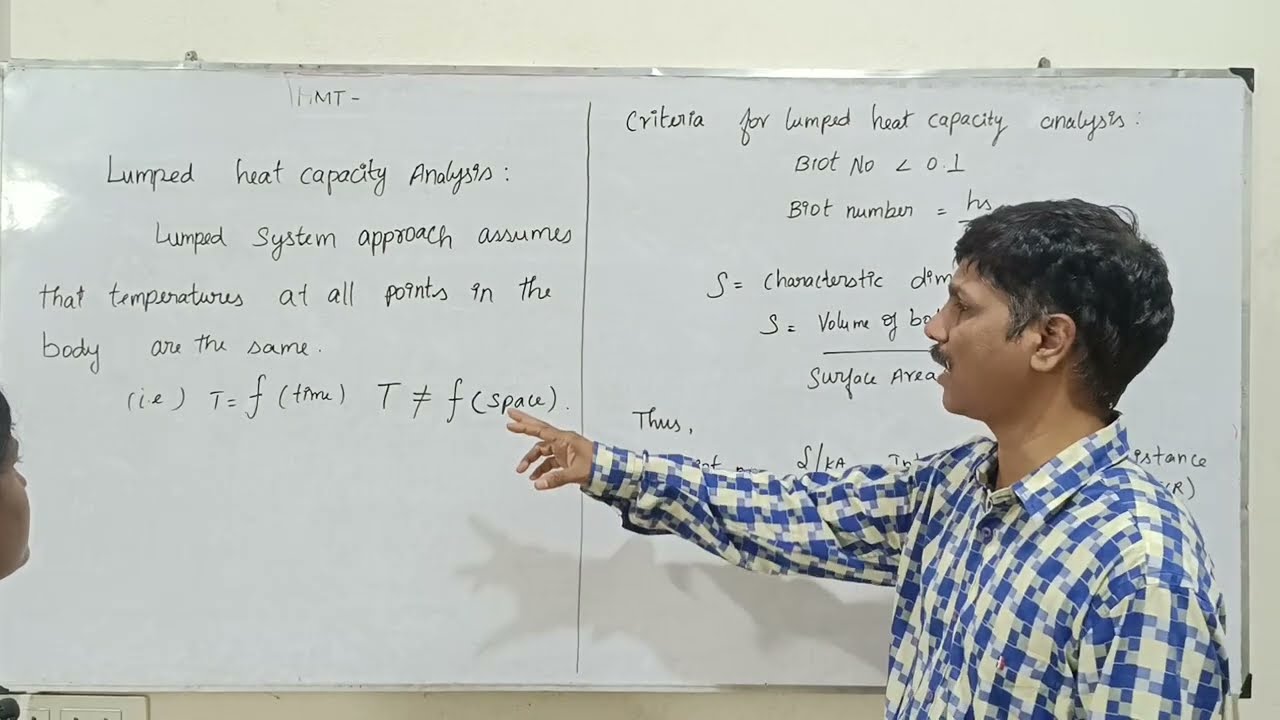 HMT -
Lumped heat capacity Analysis:
Lumped System approach assumes
that temperatures at all points in the
body are the same.
(i.e) T = f (time) T ≠ f (space).
Criteria for lumped heat capacity analysis:
Biot No < 0.1
Biot number = hs
S = Characterstic
S = Volume of
Surface Area
Thus,
S/kA
(R)